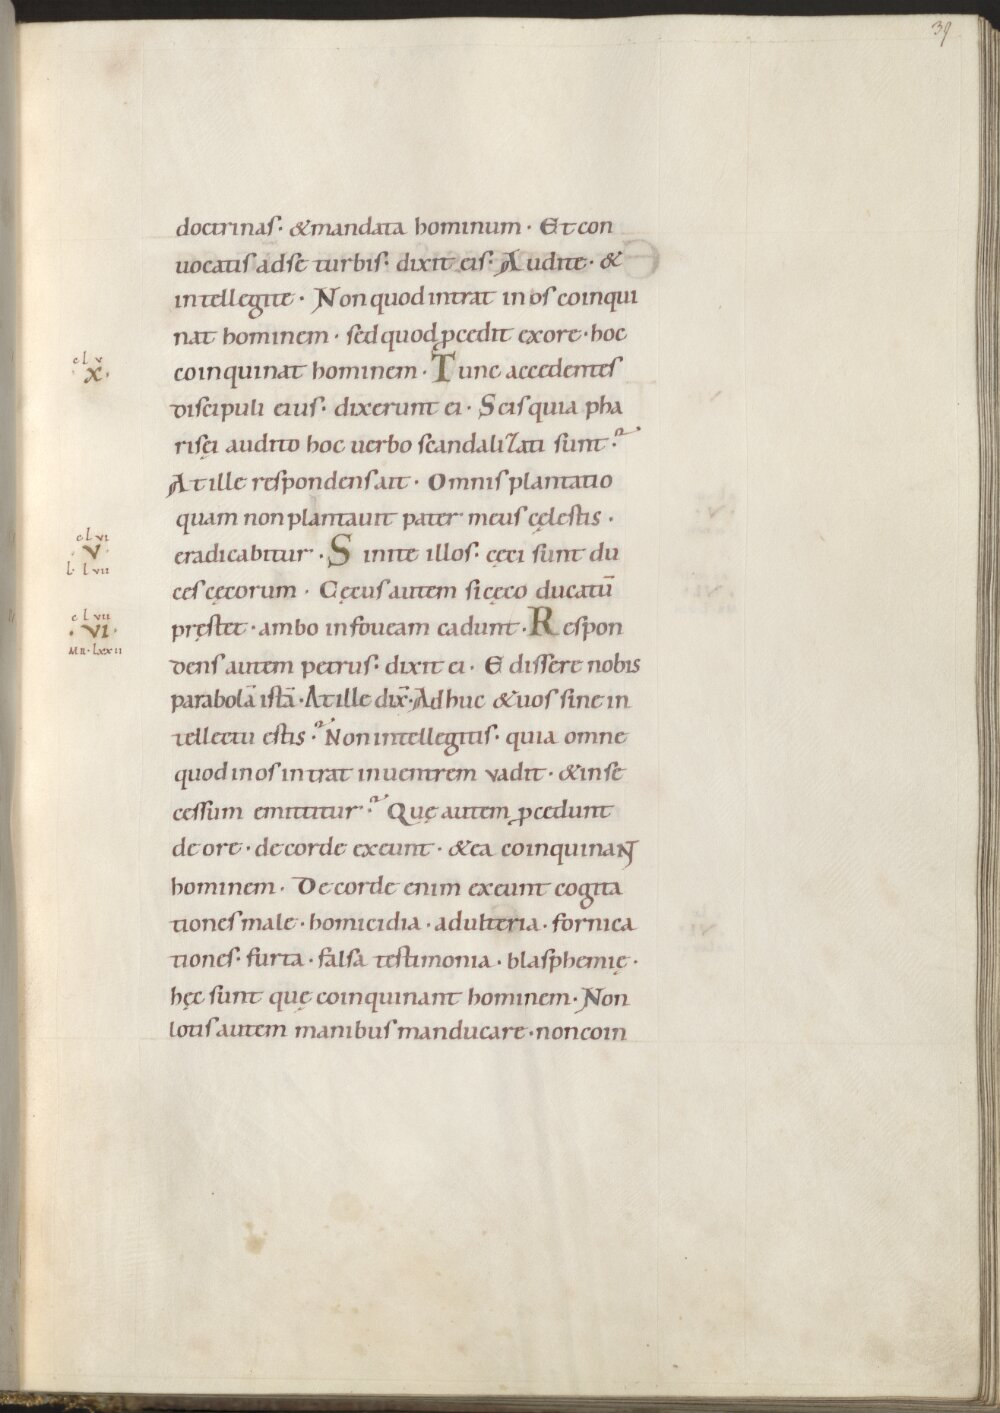 39
doctrinas· &mandata hominum· Et con
uocatis ad se turbis· dixit eis· Audite· &
intellegite· Non quod intrat in os coinqui
nat hominem· sed quod ꝓcedit ex ore· hoc
clv
·x·
coinquinat hominem· Tunc accedentes
discipuli eius· dixerunt ei· Scis quia pha
risęi audito hoc uerbo scandalizati sunt?
At ille respondens ait· Omnis plantatio
quam non plantauit pater meus cęlestis·
clvi
·v·
l· lvii
eradicabitur· Sinite illos· cęci sunt du
ces cęcorum· Cęcus autem si cęco ducatū
clvii
·vi·
MR·lxxii
pręstet· ambo in foueam cadunt· Respon
dens autem petrus· dixit ei· Edissere nobis
parabolā istā· At ille dix̄· Adhuc &uos sine in
tellectu estis? Non intellegitis· quia omne
quod in os intrat in uentrem vadit· &in se
cessum emittitur? Quę autem ꝓcedunt
de ore· de corde exeunt· &ea coinquinant
hominem· De corde enim exeunt cogita
tiones male· homicidia· adulteria· fornica
tiones· furta· falsa testimonia· blasphemię·
hęc sunt quę coinquinant hominem· Non
lotis autem manibus manducare· non coin